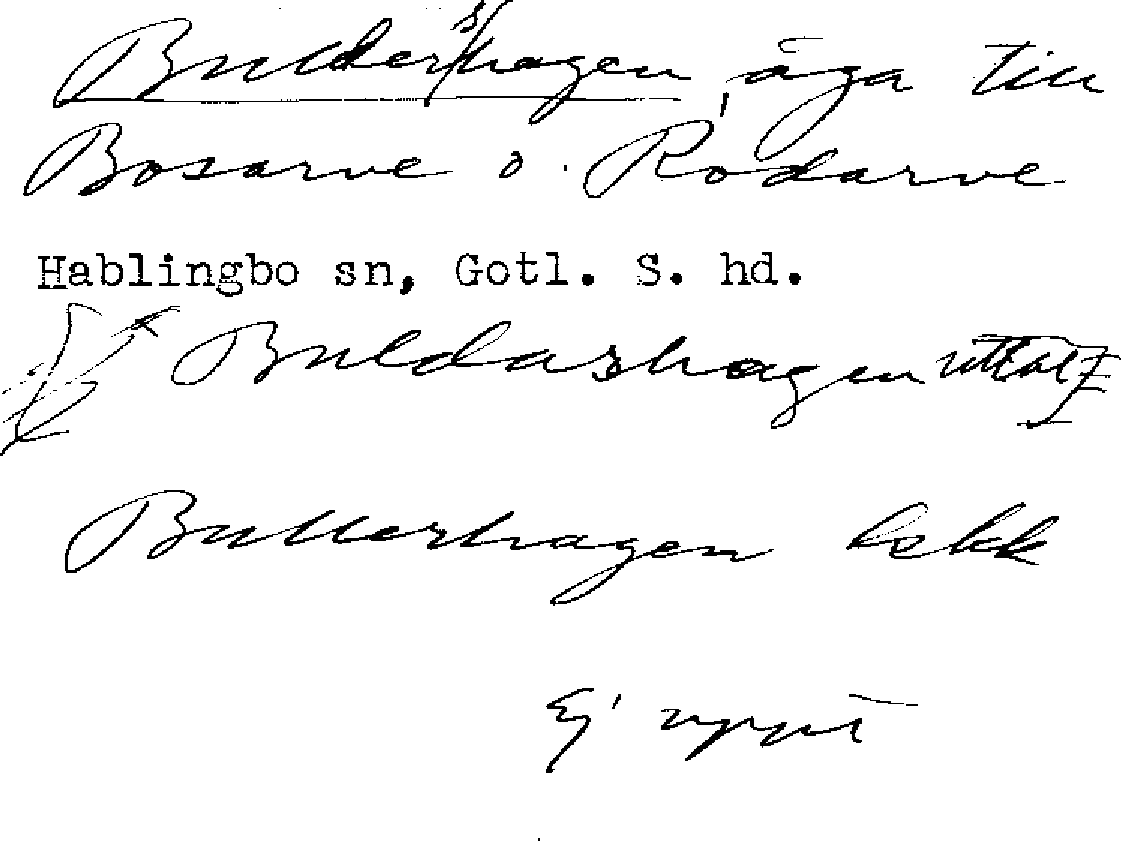 Buldershagen, äga till
Bosarve o. Rodarve
Hablingbo sn, Gotl. S. hd.
Buldarshagen uttal
Bullerhagen
Ej nytt